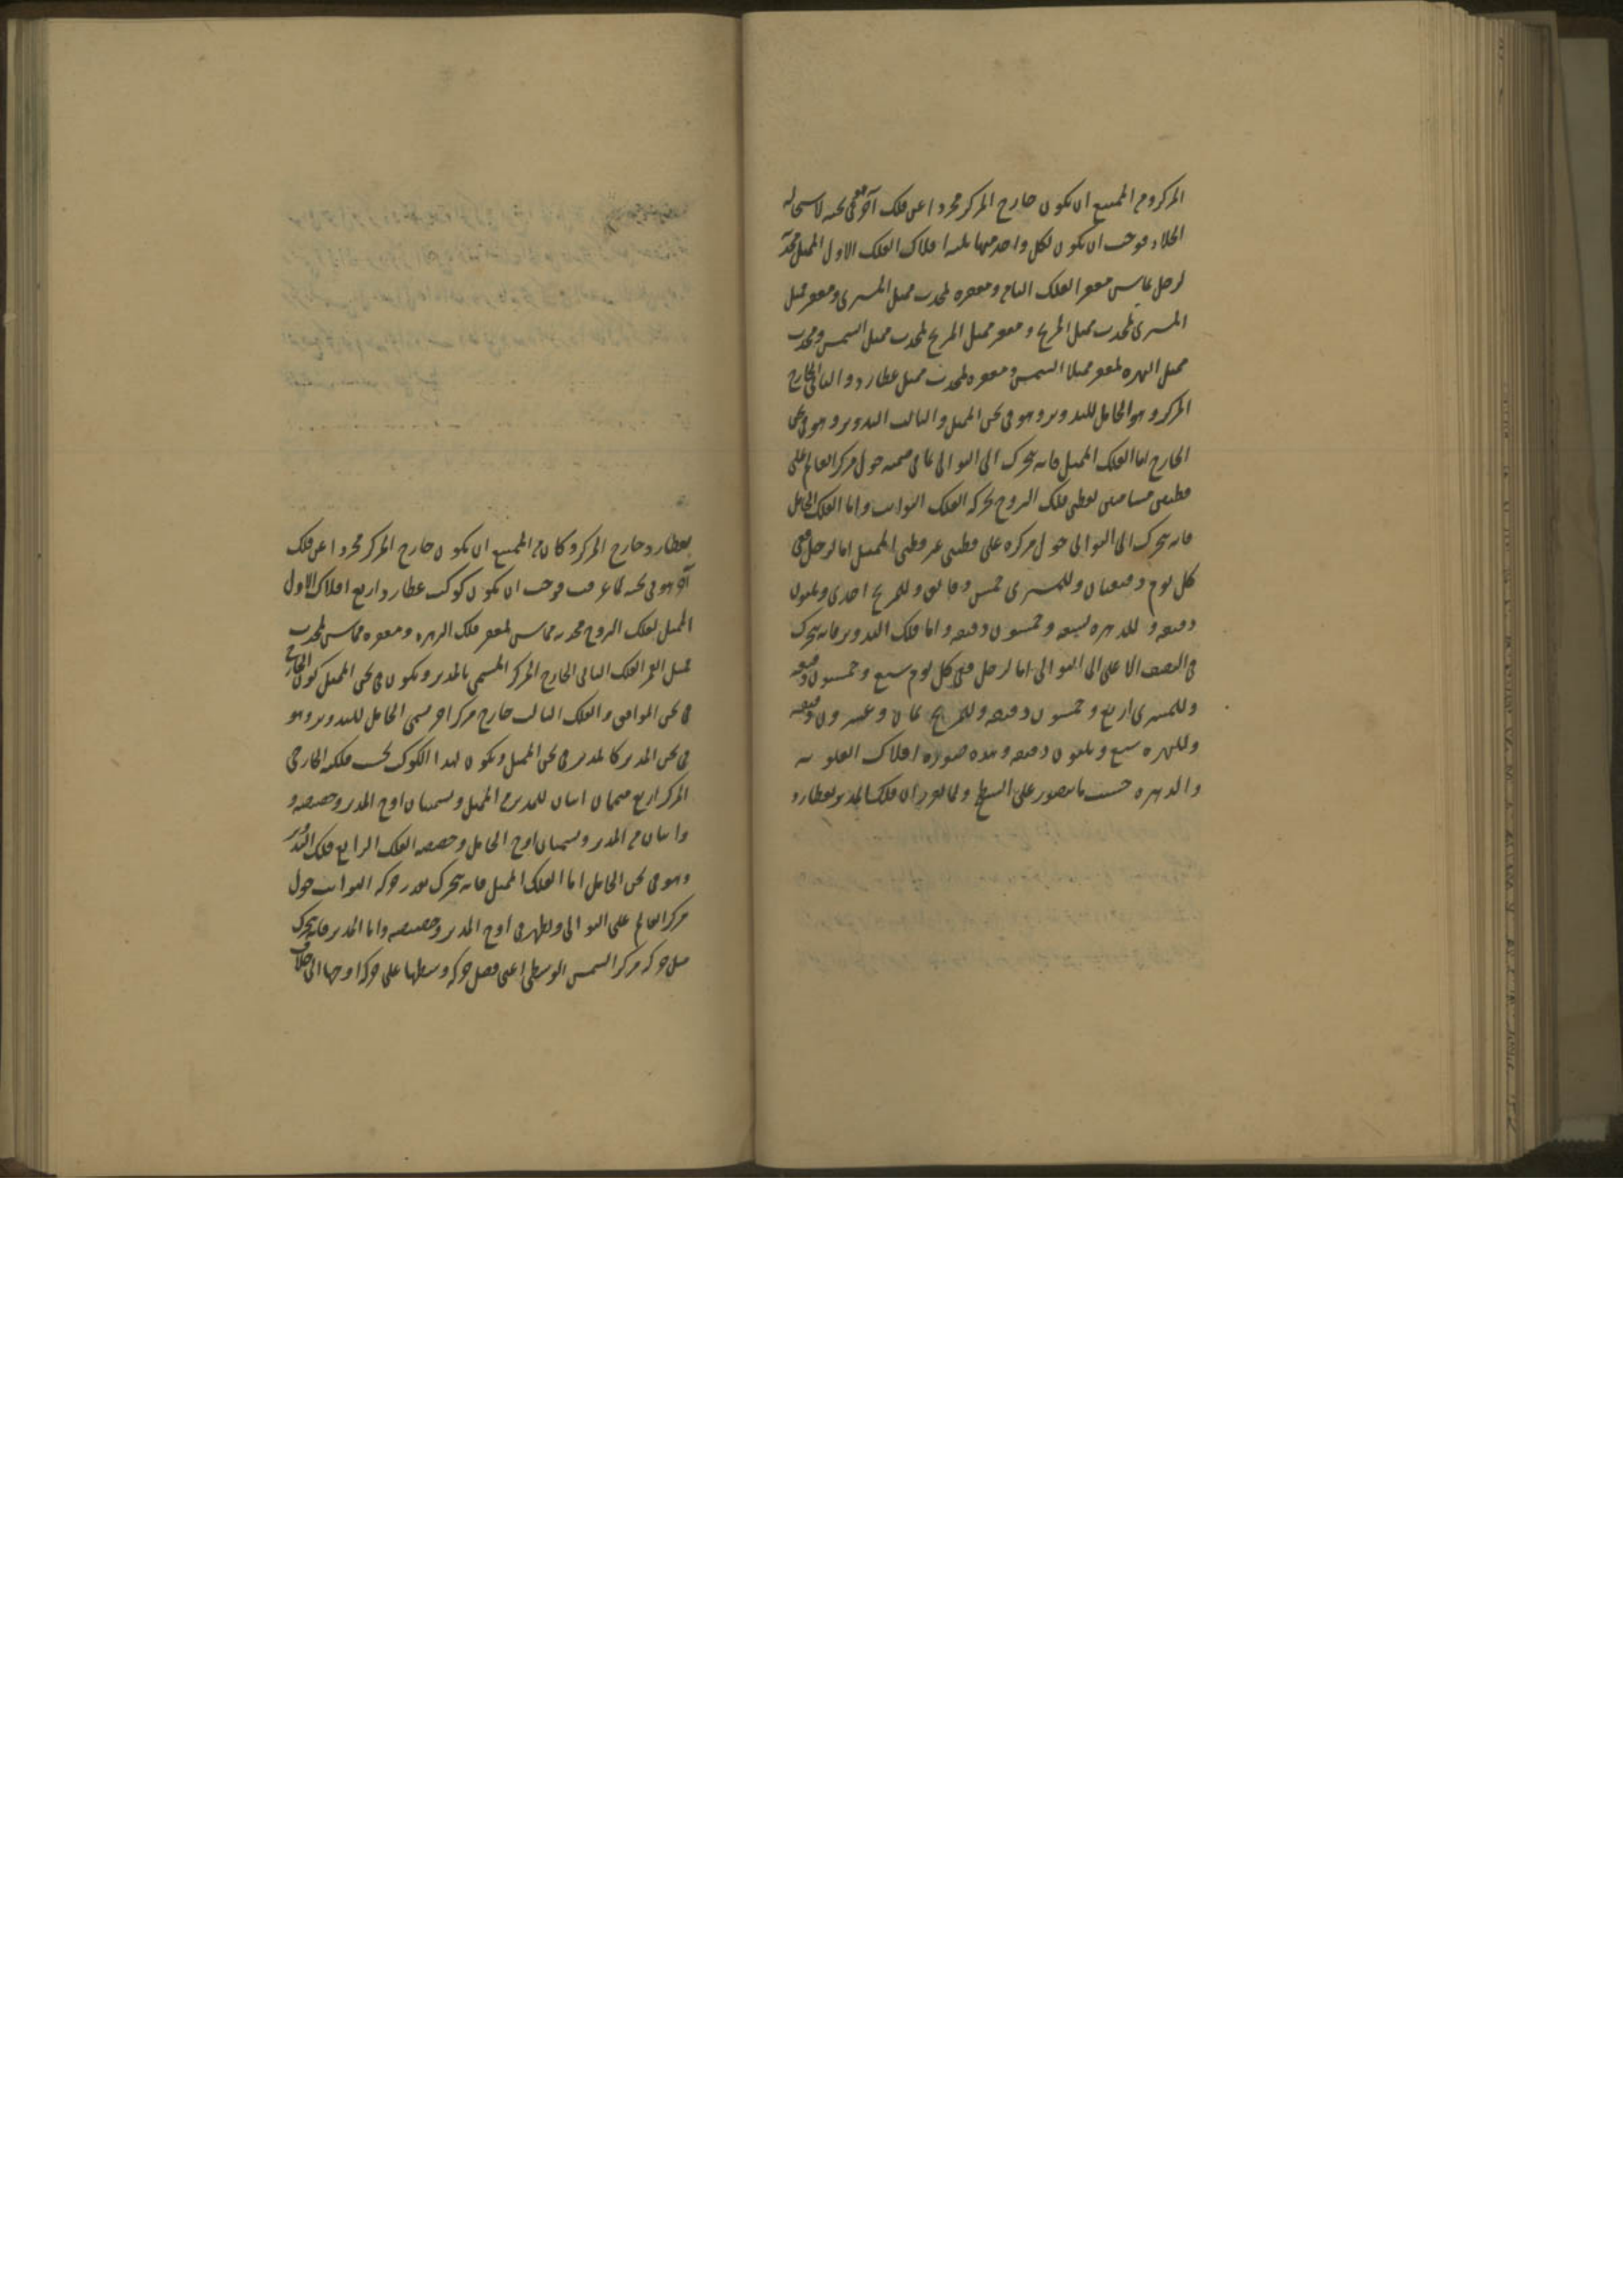 المركز ومن الممتنع ان يكون خارج المركز مجردا عن فلك آخر هو في ثخنه لاستحالة
الخلاء فوجب ان يكون لكل واحد منها ثلثة افلاك الفلك الاول الممثل محدبه
لزحل يماس مقعر الفلك الثامن ومقعره لمحدب ممثل المشترى ومقعر ممثل
المشترى لمحدب ممثل المريخ ومقعر ممثل المريخ لمحدب ممثل الشمس ومحدب
ممثل الزهره لمقعر ممثل الشمس ومقعره لمحدب ممثل عطارد والثانى الخارج
المركز وهو الحامل للتدوير وهو فى ثخن الممثل والثالث التدوير وهو فى ثخن
الخارج اما الفلك الممثل فانه يتحرك الى التوالى بما فى ضمنه حول مركز العالم على
قطبين مسامتين لقطبى فلك البروج بحركه الفلك الثوابت واما الفلك الحامل
فانه يتحرك الى التوالى حول مركزه على قطبين غير قطبى الممثل اما لزحل ففى
كل يوم دقيقتان وللمشترى خمس دقايق وللمريخ احدى وثلثون
دقيقه وللزهره تسعه وخمسون دقيقه واما فلك التدوير فانه يتحرك
فى النصف الاعلى الى التوالى اما لزحل ففى كل يوم سبع وخمسون دقيقه
وللمشترى اربع وخمسون دقيقه وللمريخ ثمان وعشرون دقيقه
وللزهره سبع وثلثون دقيقه وهذه صوره افلاك العلويه
والزهره حسب ما يتصور على السطح ولما تقرر ان فلك المدير لعطارد
لعطارد خارج المركز وكان من الممتنع ان يكون خارج المركز مجردا عن فلك
آخر هو فى ثخنه لما عرفت فوجب ان يكون لكوكب عطارد اربع افلاك الاول
الممثل لفلك البروج محدبه مماس لمقعر فلك الزهره ومقعره مماس لمحدب
ممثل القمر الفلك الثانى الخارج المركز المسمى بالمدير ويكون فى ثخن الممثل ككون الخارج
فى ثخن الموافق والفلك الثالث خارج مركز اخر يسمى الحامل للتدوير وهو
فى ثخن المدير كالمدير فى ثخن الممثل ويكون لهذا الكوكب بحسب فلكيه الخارجى
المركز اربع متممات اثنان للمدير من الممثل ويسميان اوج المدير وحضيضه و
واثنان من المدير ويسميان اوج الحامل وحضيضه الفلك الرابع فلك التدوير
وهو فى ثخن الحامل اما الفلك الممثل فانه يتحرك بقدر حركه الثوابت حول
مركز العالم على التوالى وتظهر فى اوج المدير وحضيضه واما المدير فانه يتحرك
مثل حركه مركز الشمس الوسطى اعنى فضل حركه وسطها على حركه اوجها الى خلاف